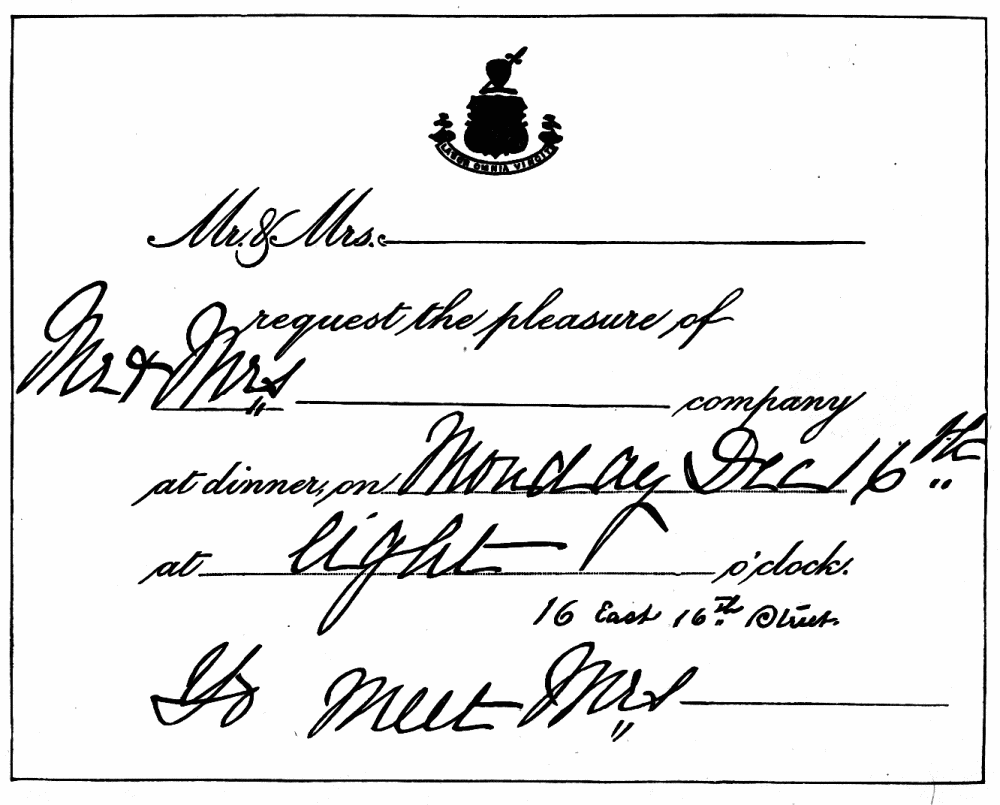 LABOR OMNIA VINCIT
Mr. & Mrs.
request the pleasure of
Mr & Mrs company
at dinner, on Monday Dec 16th
at eight o'clock.
16 East 16th Street.
To meet Mrs